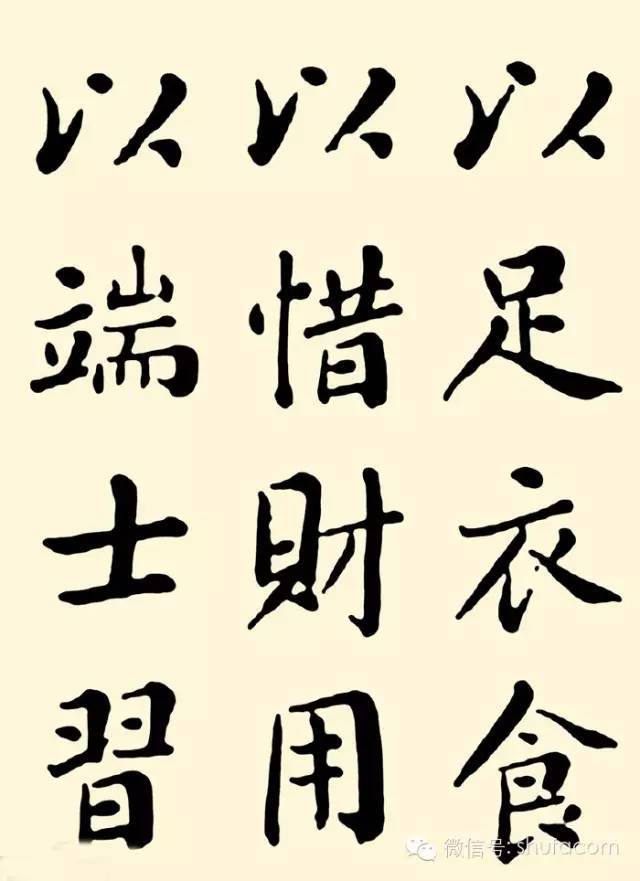 以足衣食
以惜財用
以端士習
微信号: shufacom